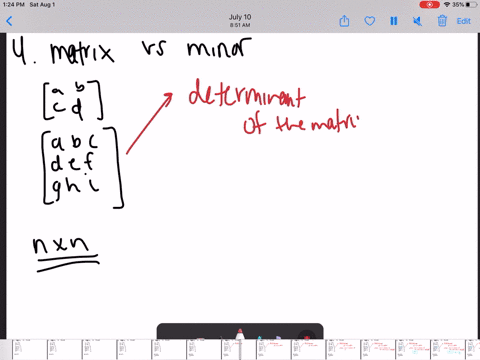 1:24 PM Sat Aug 1
35%
July 10
8:51 AM
Edit
4. matrix vs minor
a b
c d
a b c
d e f
g h i
n x n
determinant
of the matri